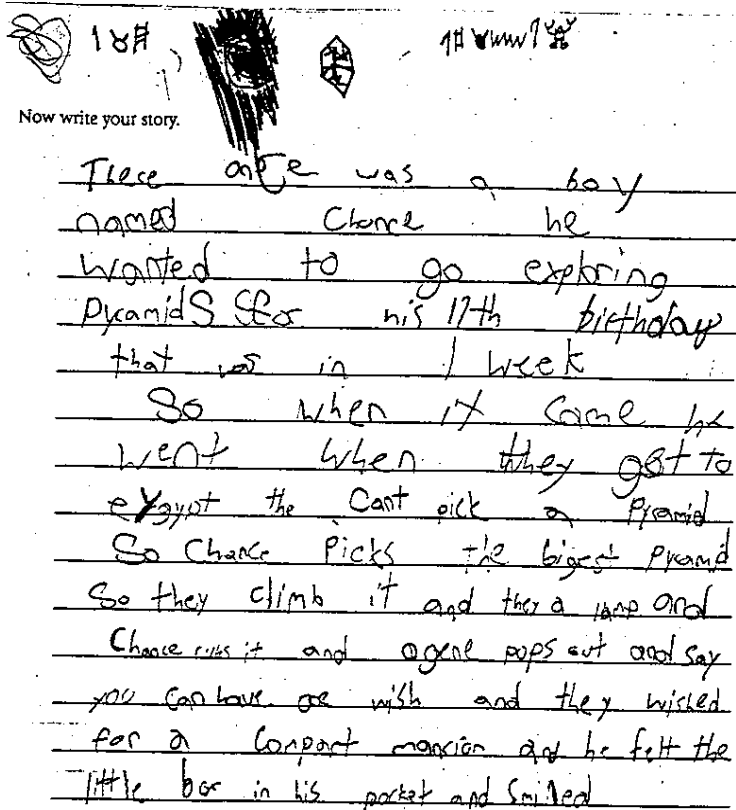 Now write your story.
There once was a boy
named Chance he
wanted to go exploring
pyramidS for his 17th birthday
that was in 1 week
So when it came he
went when they got to
eygypt the cant pick a Pyramid
So Chance Picks the bigest Pyramid
So they climb it and they a lamp and
Chance rubs it and a gene pops out and say
you can have one wish and they wished
for a conpart mancion and he felt the
little box in his pocket and smiled